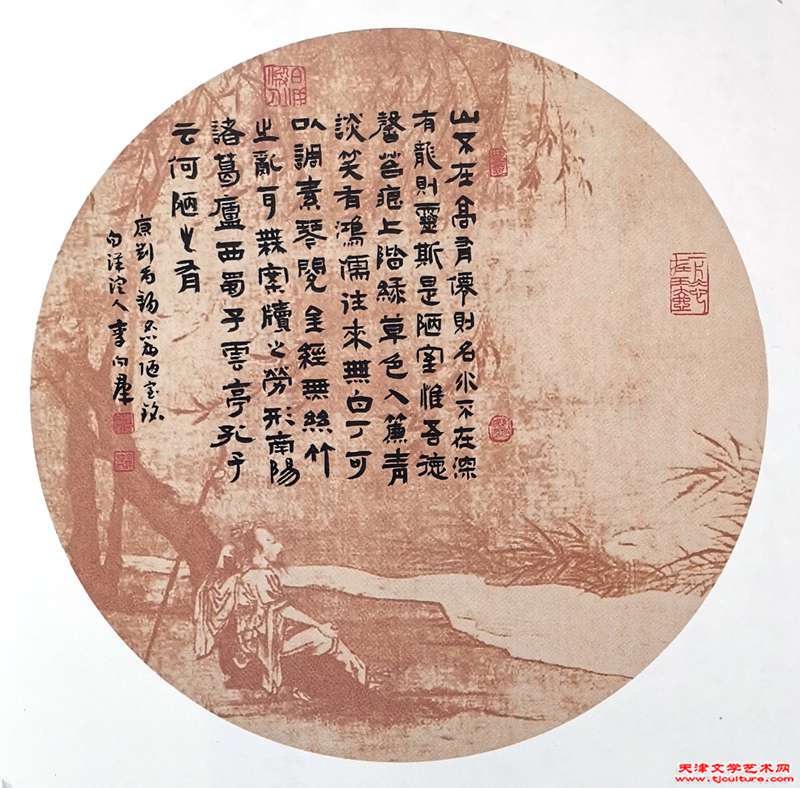 山不在高有僊則名水不在深
有龍則靈斯是陋室惟吾德
馨苔痕上階緑草色入簾青
談笑有鴻儒往來無白丁可
以調素琴閱金經無絲竹
之亂耳無案牘之勞形南陽
諸葛廬西蜀子雲亭孔子
云何陋之有
唐刘禹锡名篇陋室铭
白洋淀人李向群
天津文学艺术网
www.tjculture.com